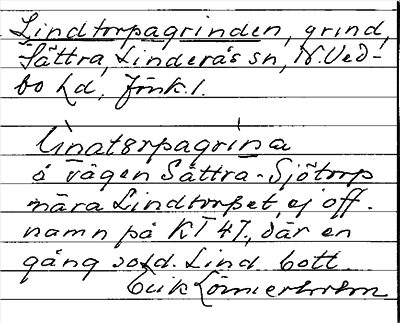 Lindtorpagrinden, grind,
Sättra, Linderås sn, N. Ved-
bo hd, Jönk. l.
å vägen Sättra-Sjötorp
nära Lindtorpet, ej off.
namn på KT 47, där en
gång sold. Lind bott.